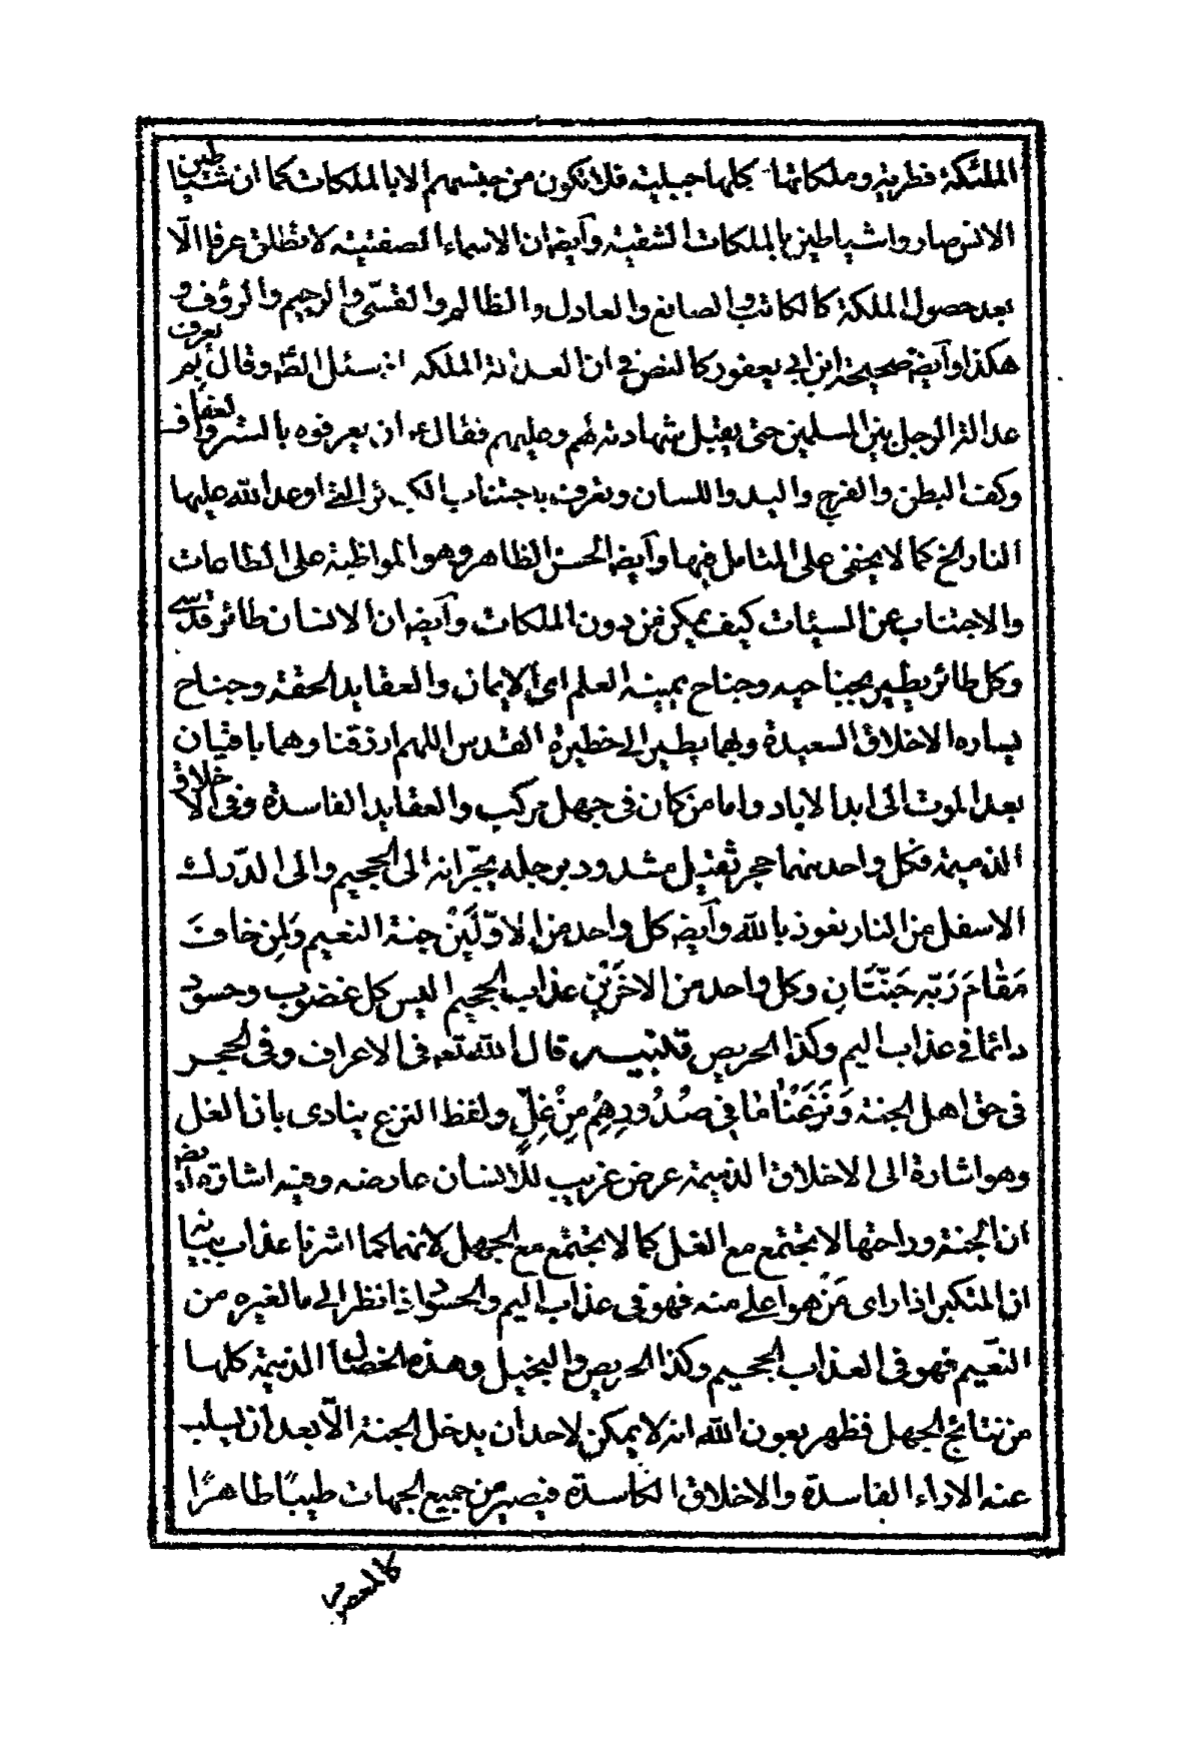 الملئكة فطرية وملكاتها كلها جبلية فلا تكون من جنسهم الا بالملكات كما ان شياطين
الانس صاروا شياطين بالملكات الشقية وآيضا ان الاسماء الصفتية لا تطلق عرفا الّا
بعد حصول الملكة كالكاتب والصانع والعادل والظالم والقسّى والرحيم والرؤف و
هكذا وآيضا صحيحة ابن ابى يعفور كالنص فى ان العدالة الملكه سئل الصّ وقال بم يعرف
عدالة الرجل بين المسلمين حتى يقبل شهادته لهم وعليهم فقال ع ان يعرفوه بالستر والعفاف
وكف البطن والفرج واليد واللسان وتعرف باجتناب الكبائر التى اوعد الله عليها
النار الخ كما لا يخفى على المتامل فيها وآيضا الحسن الظاهر وهو المواظبة على الطاعات
والاجتناب عن السيئات كيف يمكن من دون الملكات وآيضا ان الانسان طائر قدسى
وكل طائر يطير بجناحيه وجناح يمينه العلم اى الايمان والعقايد الحقة وجناح
يساره الاخلاق السعيدة وبهما يطير الى خطيرة القدس اللهم ارزقنا وهما باقيان
بعد الموت الى ابد الاباد واما من كان فى جهل مركب والعقايد الفاسدة وفى الاخلاق
الذميمة فكل واحد منهما حجر ثقيل مشدود برجله يجرّانه الى الجحيم والى الدّرك
الاسفل من النار نعوذ بالله وآيضا كل واحد من الاوّلَيْن جنة النعيم وَلِمن خافَ
مَقَامَ رَبّهِ جَنّتَانِ وكل واحد من الاخرَيْن عذاب الجحيم اليس كل غضوب وحسود
دائما فى عذاب اليم وكذا الحريص تنبيه قال الله تعه فى الاعراف وفى الحجر
فى حق اهل الجنة وَنَزَعْنَا مَا فِى صُدُورِهِمْ مِنْ غِلٍّ ولفظ النزع ينادى بان الغل
وهو اشارة الى الاخلاق الذميمة عرض غريب للانسان عارضه وفيه اشارة ايضا
ان الجنة وراحتها لا يجتمع مع الغل كما لا يجتمع مع الجهل لانهما كما اشرنا عذاب بيانه
ان المتكبر اذا راى مَنْ هو اعلى منه فهو فى عذاب اليم والحسود اذا نظر الى ما لغيره من
النعيم فهو فى العذاب الجحيم وكذا الحريص والبخيل وهذه الخصائل الذميمة كلها
من نتائج الجهل فظهر بعون الله انه لا يمكن لاحد ان يدخل الجنة الّا بعد ان يسلب
عنه الاراء الفاسدة والاخلاق الكاسدة فيصير من جميع الجهات طيبًا طاهرًا